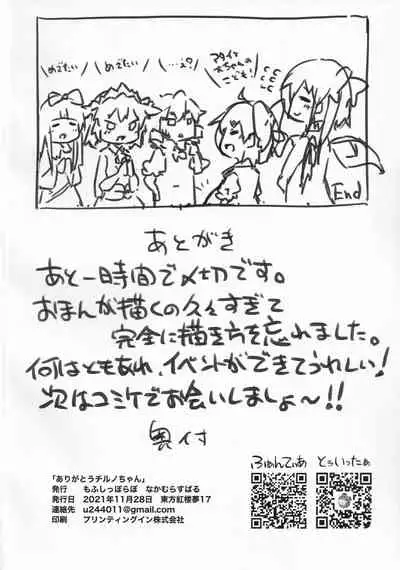 めでたい
めでたい
…え?
End
あとがき
あと一時間で〆切です。
おほんが描くの久々すぎて
完全に描き方を忘れました。
何はともあれ、イベントができてうれしい!
次はコミケでお会いしましょ〜!!
奥付
ふぁんてぃあ
とぅいったぁ
「ありがとうチルノちゃん」
発行 もふしっぽらぼ なかむらすばる
発行日 2021年11月28日 東方紅楼夢17
連絡先 u244011@gmail.com
印刷 プリンティングイン株式会社